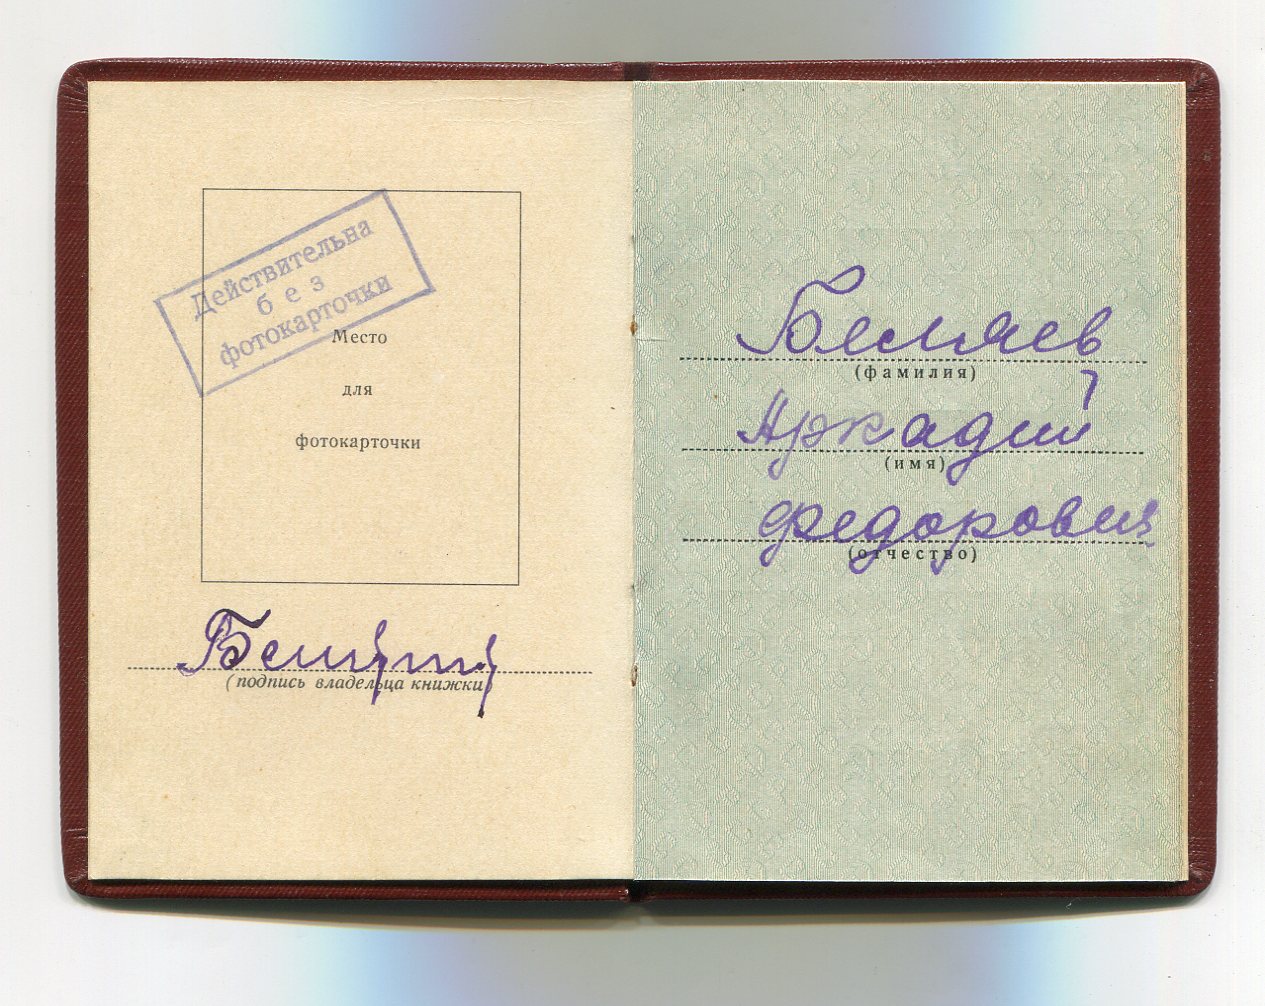 Действительна
без
фотокарточки
Место
для
фотокарточки
(подпись владельца книжки)
Беляев
(фамилия)
Аркадий
(имя)
Федорович
(отчество)